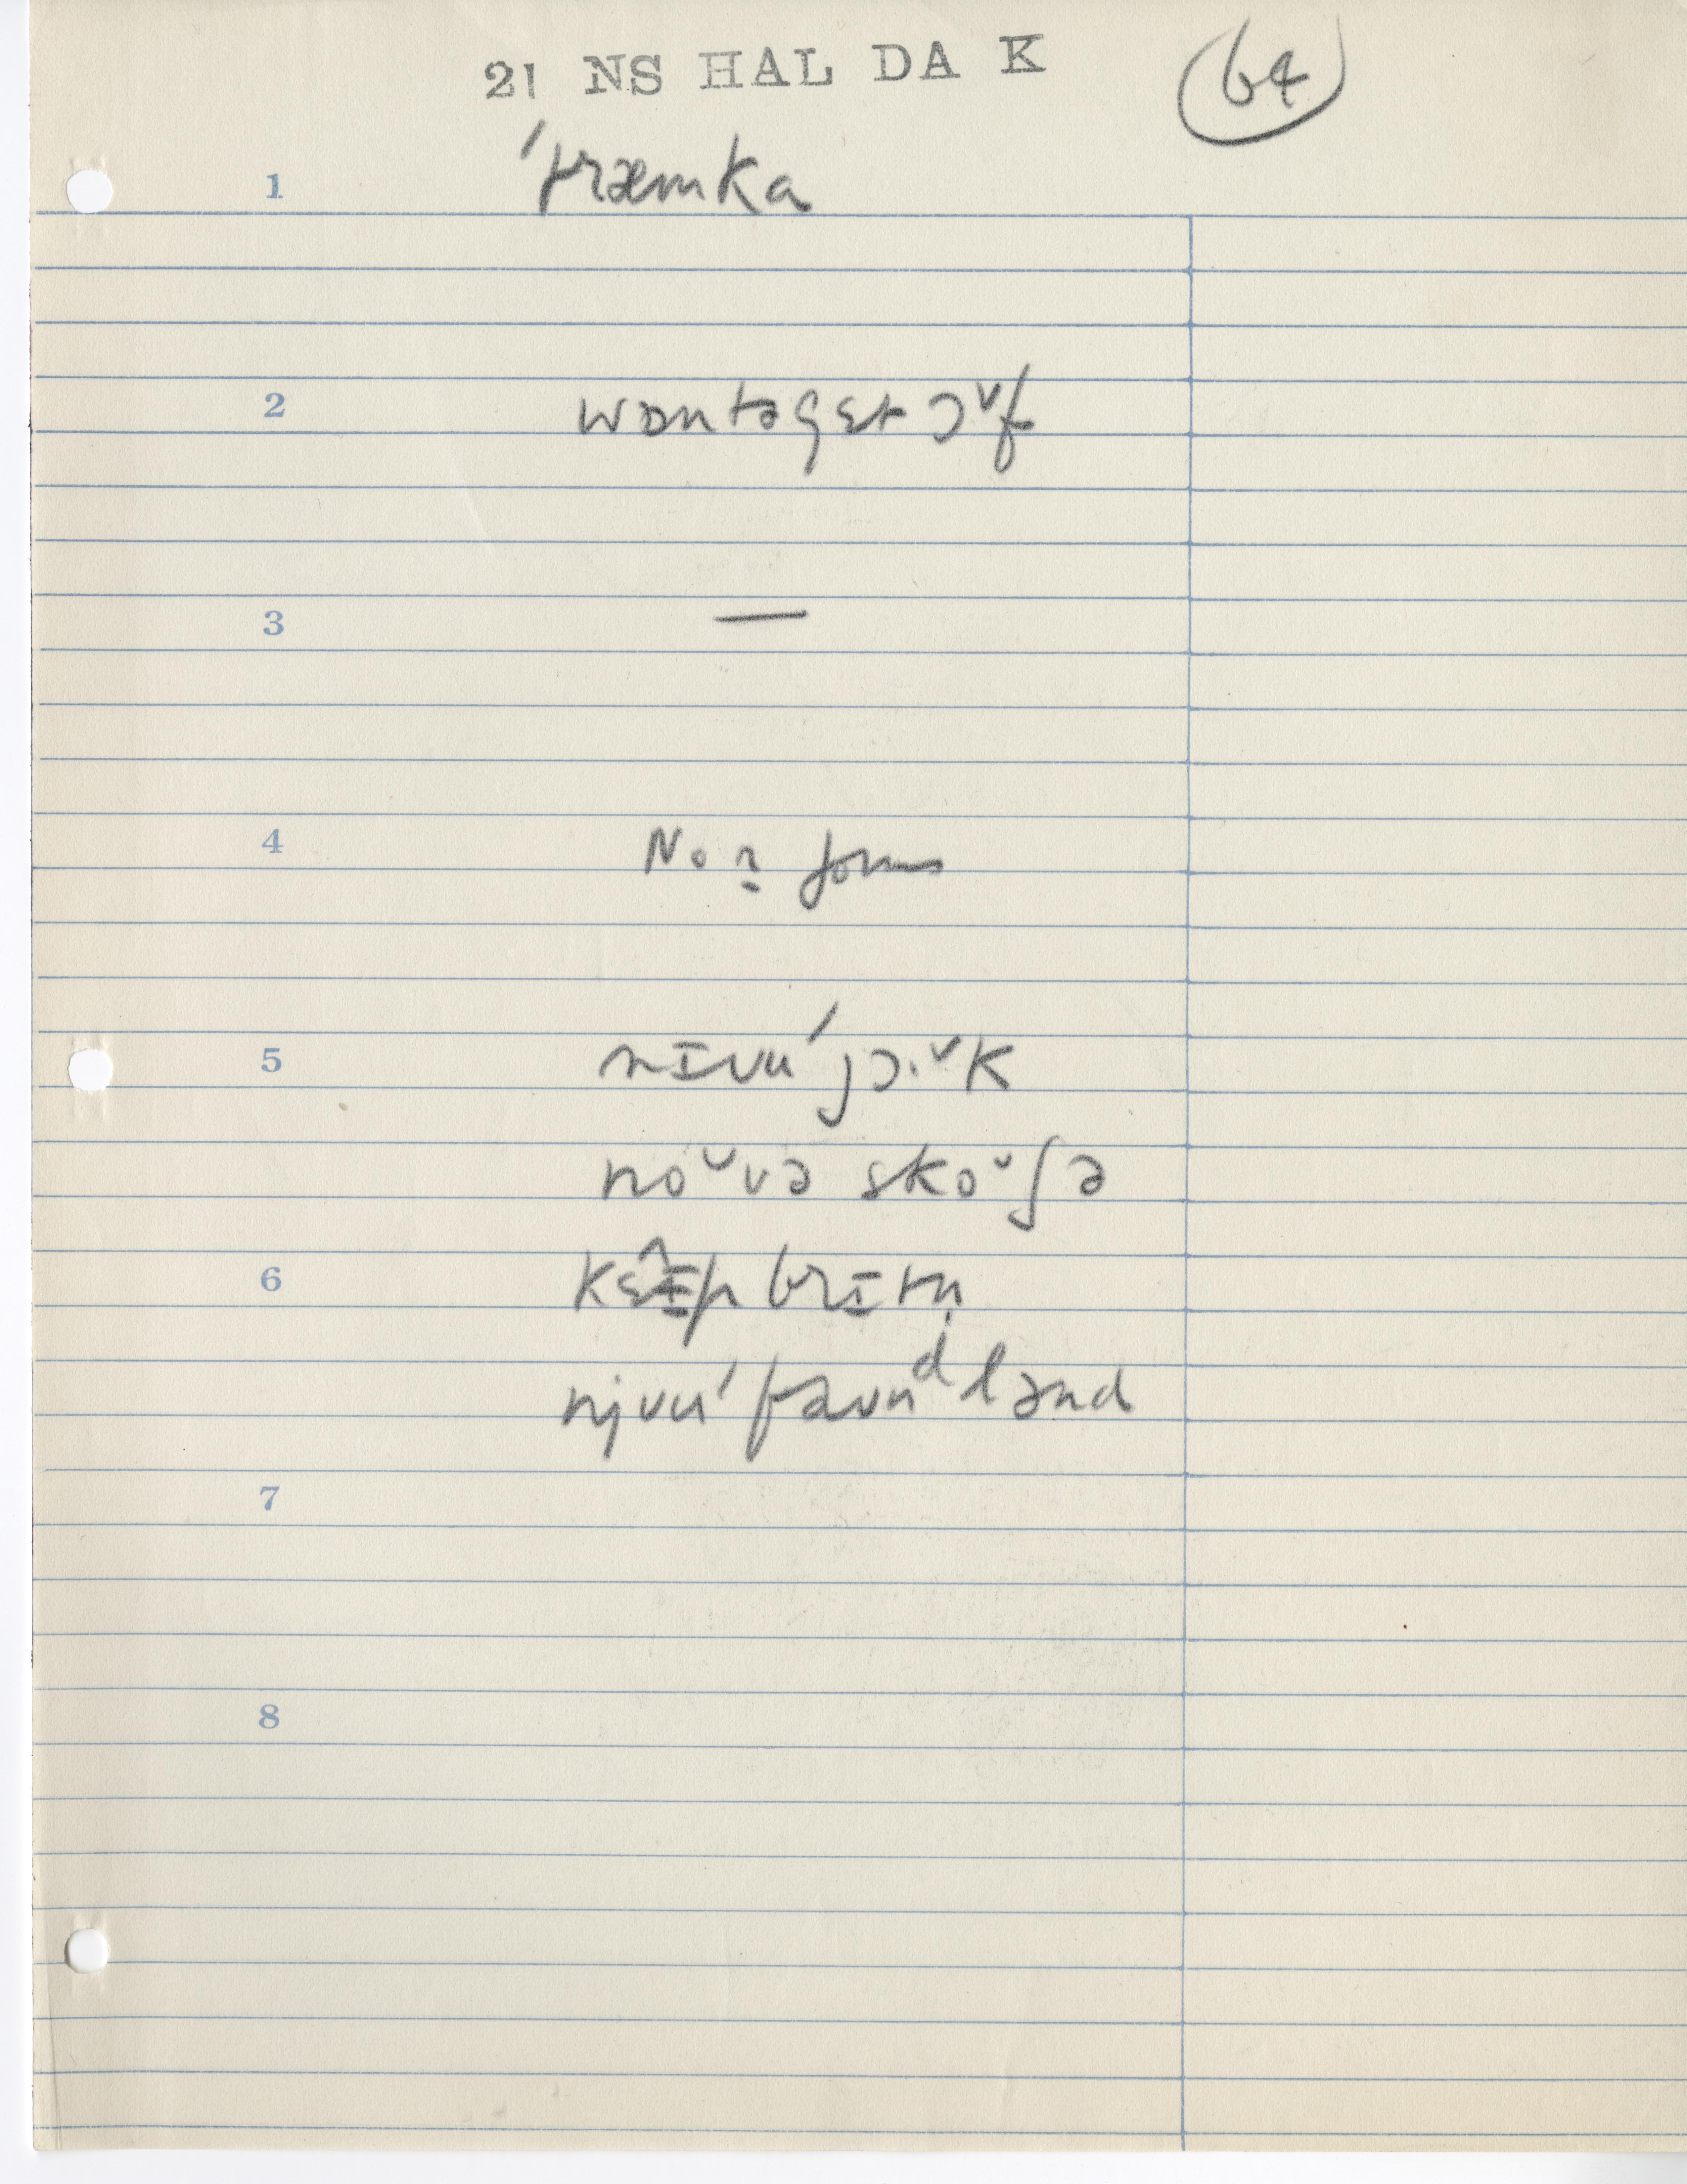 21 NS HAL DA K 64
1 ˈtræmka
2 wɒntəgɛt ɔᵛf
3 —
4 No ɜ̱ forms
5 nɪvuˈjɔ.ᵛk
noᵛvə skoᵛʃə
6 kɛɪ̂p brɪtn̩
njvuˈfaʊnᵈlənd
7
8